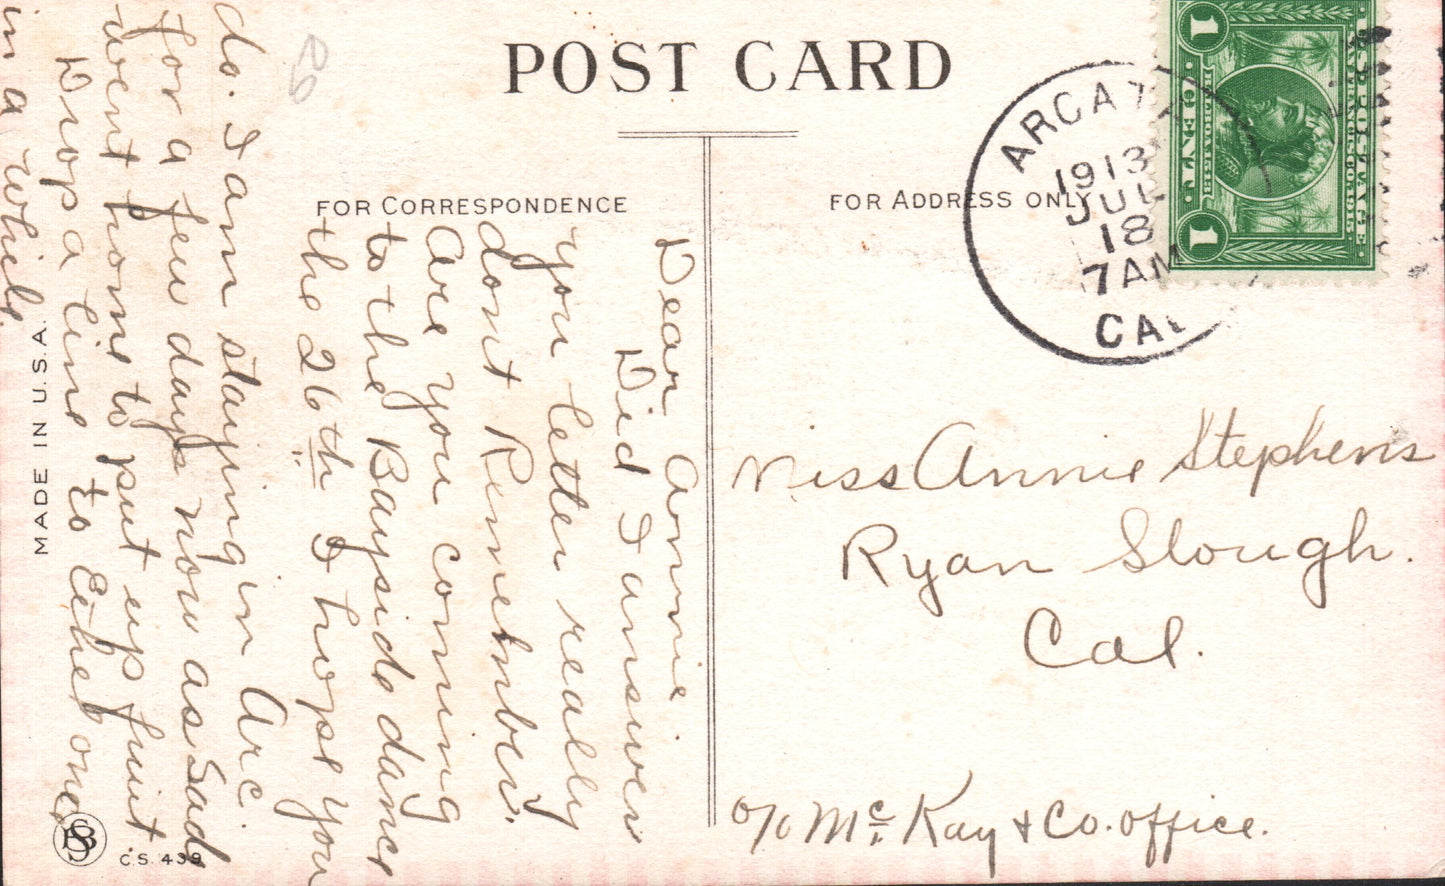 POST CARD
FOR CORRESPONDENCE
FOR ADDRESS ONLY
Dear Annie
Did I answer
your letter really
dont Remember.
Are you coming
to the Bayside dance
the 26th I hope you
do. I am staying in Arc.
for a few days now as Sad
went home to put up fruit.
Drop a line to Either one
in a while.
Miss Annie Stephens
Ryan Slough.
Cal.
c/o McKay & Co. office.
ARCATA
1913
JUL
18
7AM
CAL
1 CENT 1
BALBOA 1513
MADE IN U.S.A.
C.S. 439
60